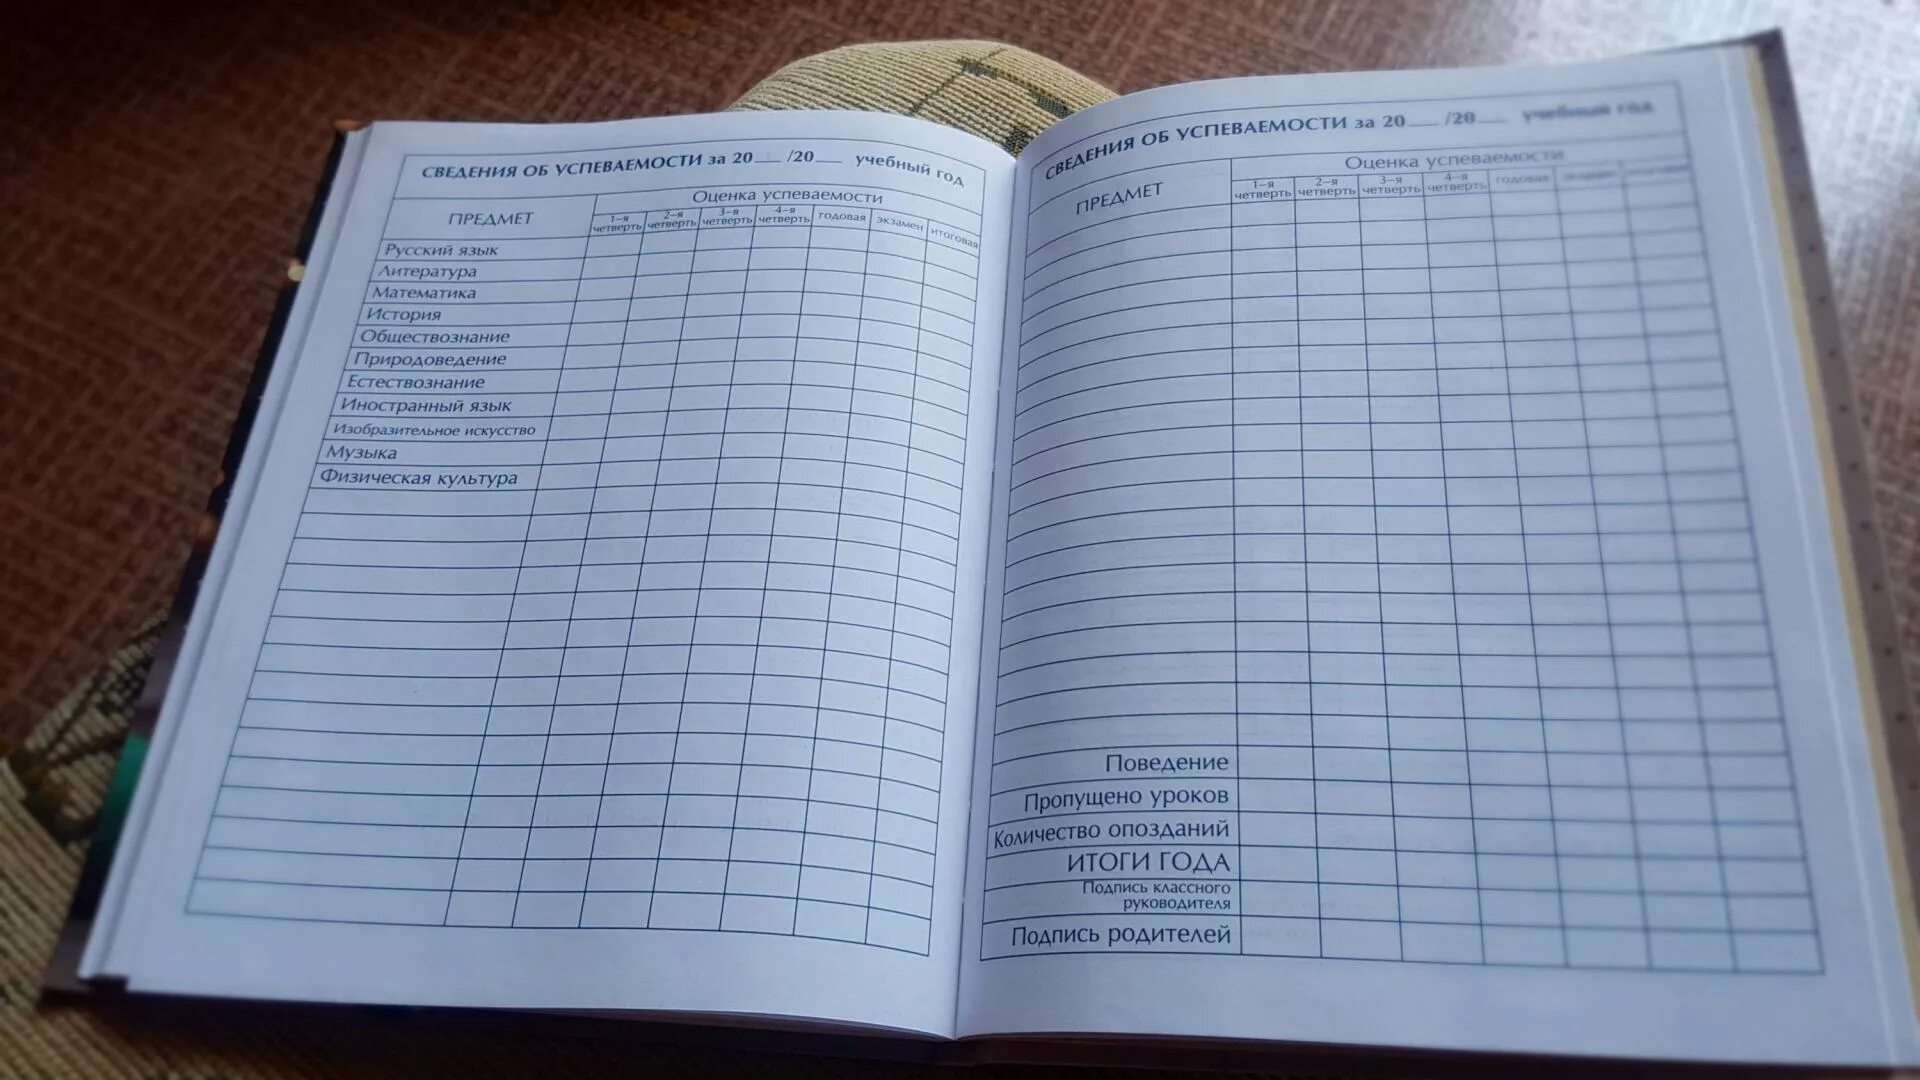 СВЕДЕНИЯ ОБ УСПЕВАЕМОСТИ за 20___ /20___ учебный год
ПРЕДМЕТ
Оценка успеваемости
1–я четверть
2–я четверть
3–я четверть
4–я четверть
годовая
экзамен
итоговая
Русский язык
Литература
Математика
История
Обществознание
Природоведение
Естествознание
Иностранный язык
Изобразительное искусство
Музыка
Физическая культура
СВЕДЕНИЯ ОБ УСПЕВАЕМОСТИ за 20___ /20___ учебный год
ПРЕДМЕТ
Оценка успеваемости
1–я четверть
2–я четверть
3–я четверть
4–я четверть
годовая
Поведение
Пропущено уроков
Количество опозданий
ИТОГИ ГОДА
Подпись классного
руководителя
Подпись родителей